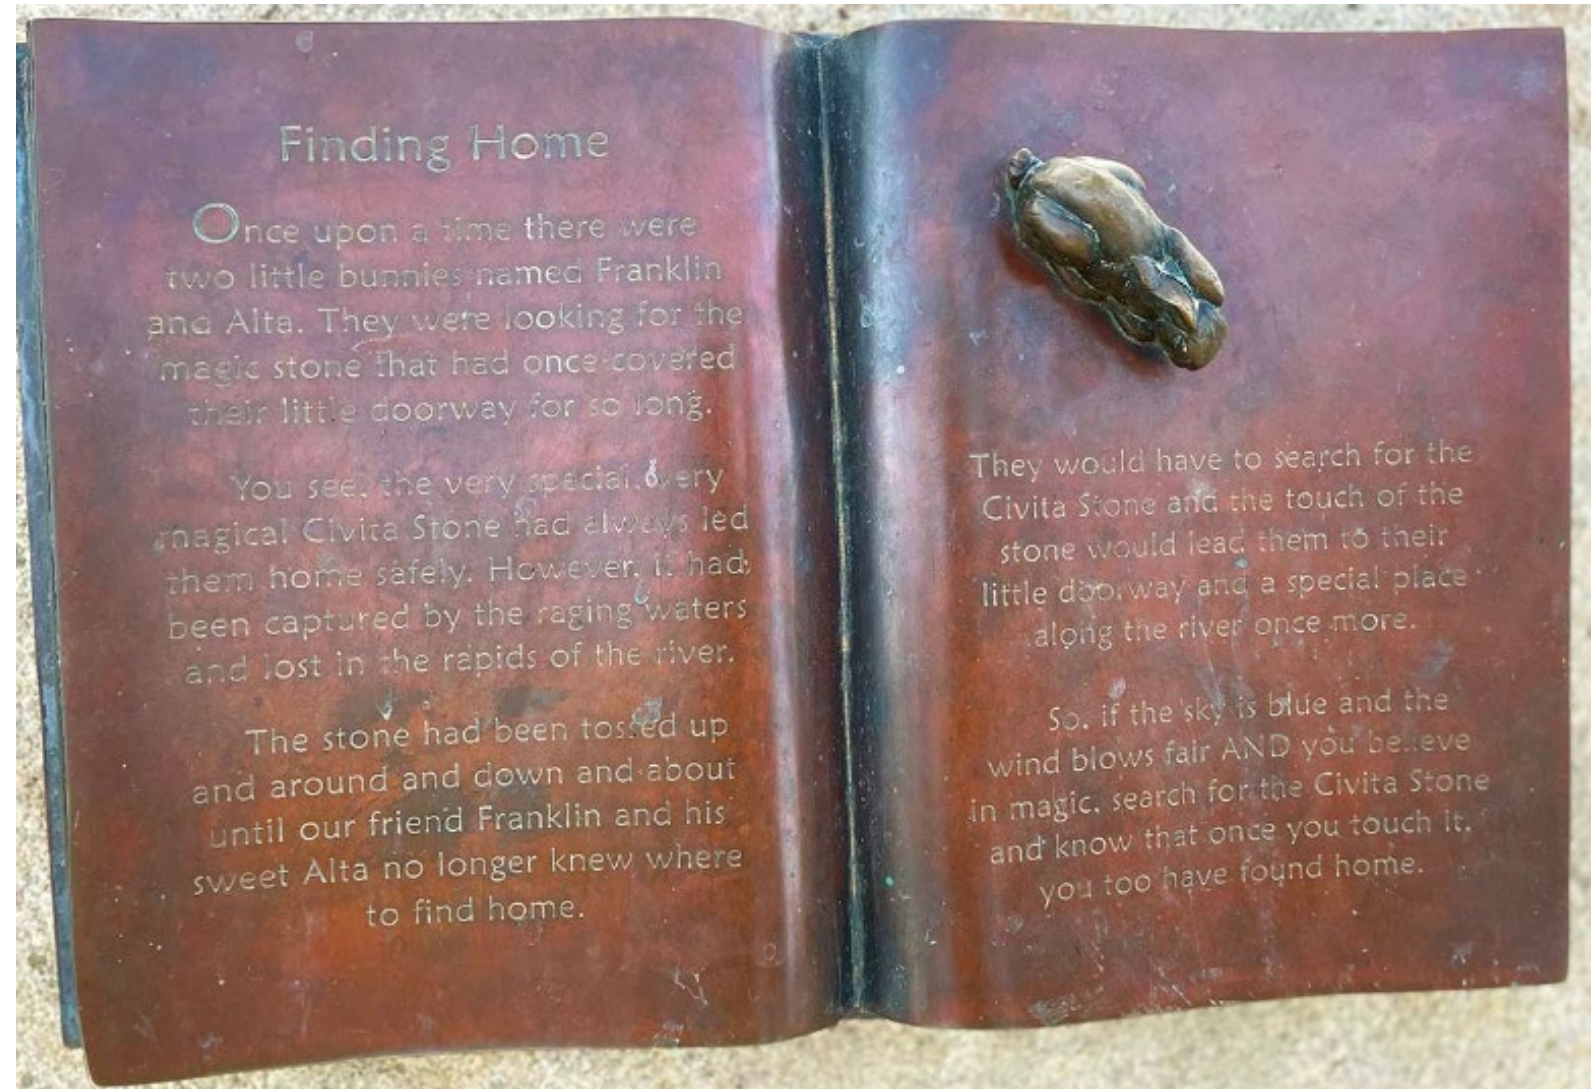 Finding Home
Once upon a time there were
two little bunnies named Franklin
and Alta. They were looking for the
magic stone that had once covered
their little doorway for so long.
You see, the very special, very
magical Civita Stone had always led
them home safely. However, it had
been captured by the raging waters
and lost in the rapids of the river.
The stone had been tossed up
and around and down and about
until our friend Franklin and his
sweet Alta no longer knew where
to find home.
They would have to search for the
Civita Stone and the touch of the
stone would lead them to their
little doorway and a special place
along the river once more.
So, if the sky is blue and the
wind blows fair AND you believe
in magic, search for the Civita Stone
and know that once you touch it,
you too have found home.